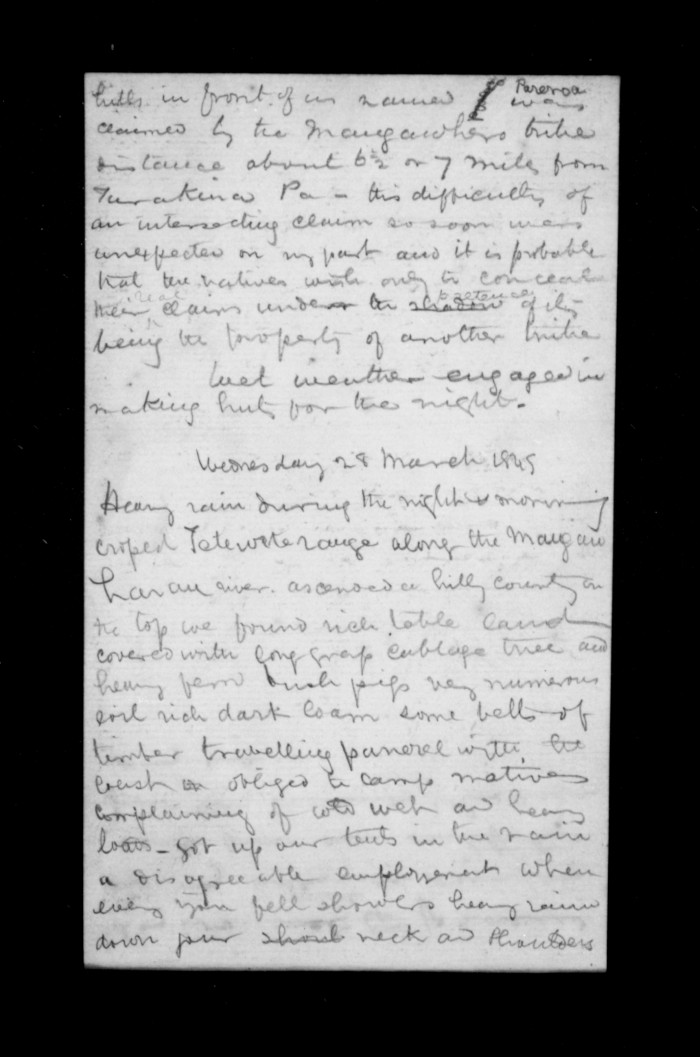 hills in front of us named Pareroa was
claimed by the Mangawhero tribe
distance about 6½ or 7 miles from
Turakina Pa - this difficulty of
an intersecting claim so soon was
unexpected on my part and it is probable
that the natives wish only to conceal
their real claims under the shadow pretence of its
being the property of another tribe
Wet weather engaged in
making huts for the night.
Wednesday 28 March 1849
Heavy rain during the night & morning
croped range along the Mangaw
harau river. ascended a hilly country on
the top we found rich table land
covered with long grap cabbage tree and
heavy fern bush pigs very numerous
soil rich dark loam some belts of
timber travelling pararel with the
coast obliged to camp natives
complaining of cold wet and heavy
loads - got up our tents in the rain
a disagreeable employment when
every you fell showers heavy rain
down your neck and shoulders